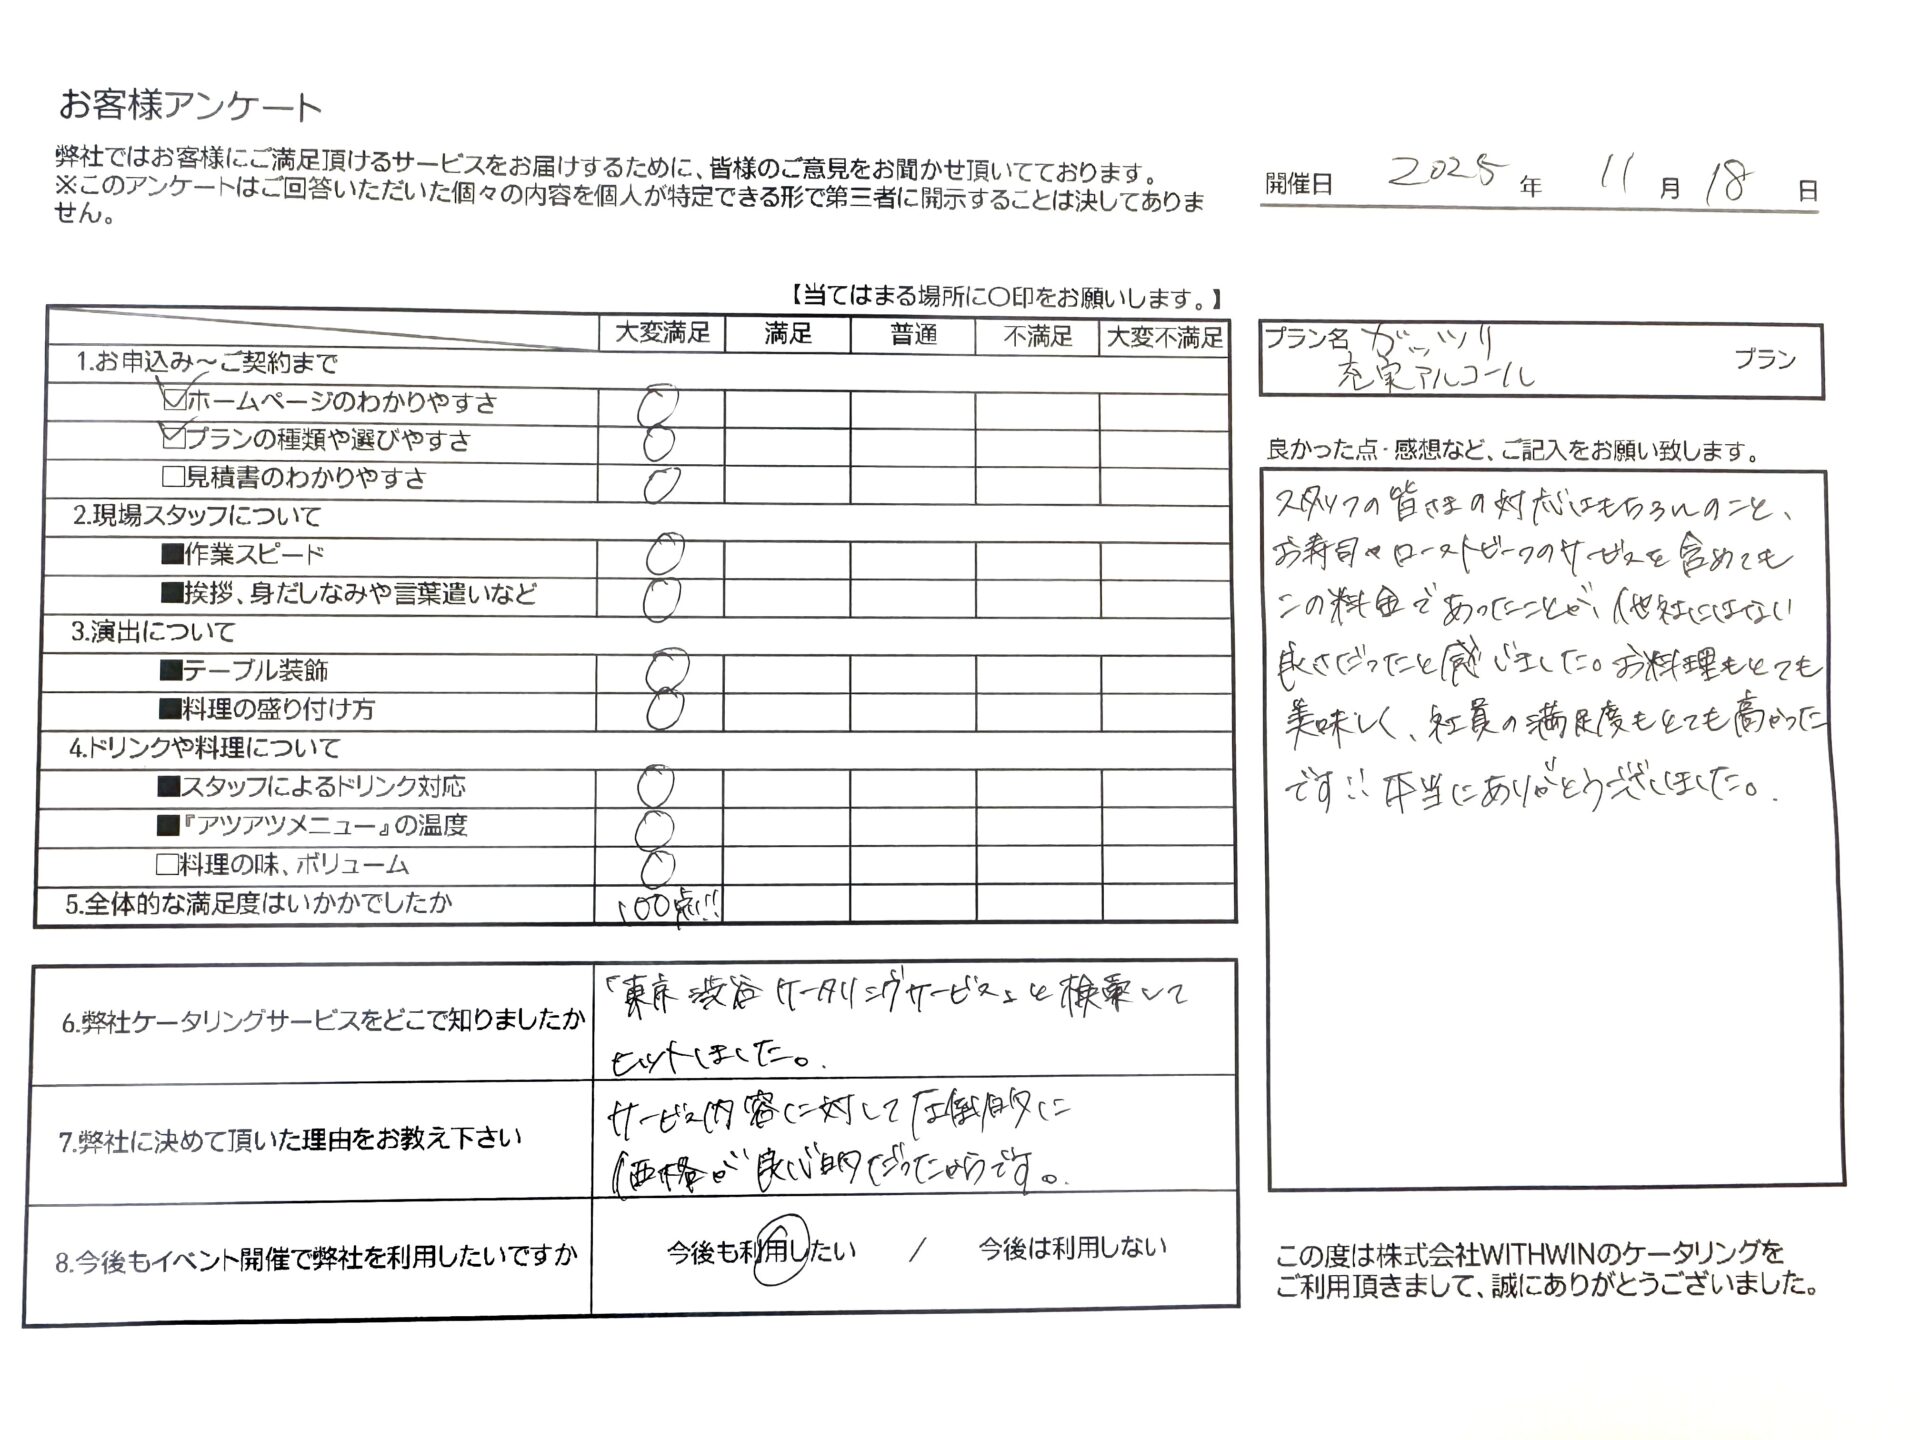 お客様アンケート
弊社ではお客様にご満足頂けるサービスをお届けするために、皆様のご意見をお聞かせ頂いてております。
※このアンケートはご回答いただいた個々の内容を個人が特定できる形で第三者に開示することは決してありま
せん。
開催日 2025 年 11 月 18 日
【当てはまる場所に〇印をお願いします。】
大変満足 満足 普通 不満足 大変不満足
1.お申込み～ご契約まで
☑ホームページのわかりやすさ ○
☑プランの種類や選びやすさ ○
□見積書のわかりやすさ ○
2.現場スタッフについて
■作業スピード ○
■挨拶、身だしなみや言葉遣いなど ○
3.演出について
■テーブル装飾 ○
■料理の盛り付け方 ○
4.ドリンクや料理について
■スタッフによるドリンク対応 ○
■『アツアツメニュー』の温度 ○
□料理の味、ボリューム ○
5.全体的な満足度はいかかでしたか 100点!!
6.弊社ケータリングサービスをどこで知りましたか
「東京 渋谷 ケータリングサービス」と検索して
ヒットしました。
7.弊社に決めて頂いた理由をお教え下さい
サービス内容に対して圧倒的に
価格が良心的だったからです。
8.今後もイベント開催で弊社を利用したいですか
今後も利用したい / 今後は利用しない
プラン名 ガッツリ
充実アルコール プラン
良かった点・感想など、ご記入をお願い致します。
スタッフの皆さまの対応はもちろんのこと、
お寿司やローストビーフのサービスを含めても
この料金であったことが、他社にはない
良さだったと感じました。お料理もとても
美味しく、社員の満足度もとても高かった
です!! 本当にありがとうございました。
この度は株式会社WITHWINのケータリングを
ご利用頂きまして、誠にありがとうございました。